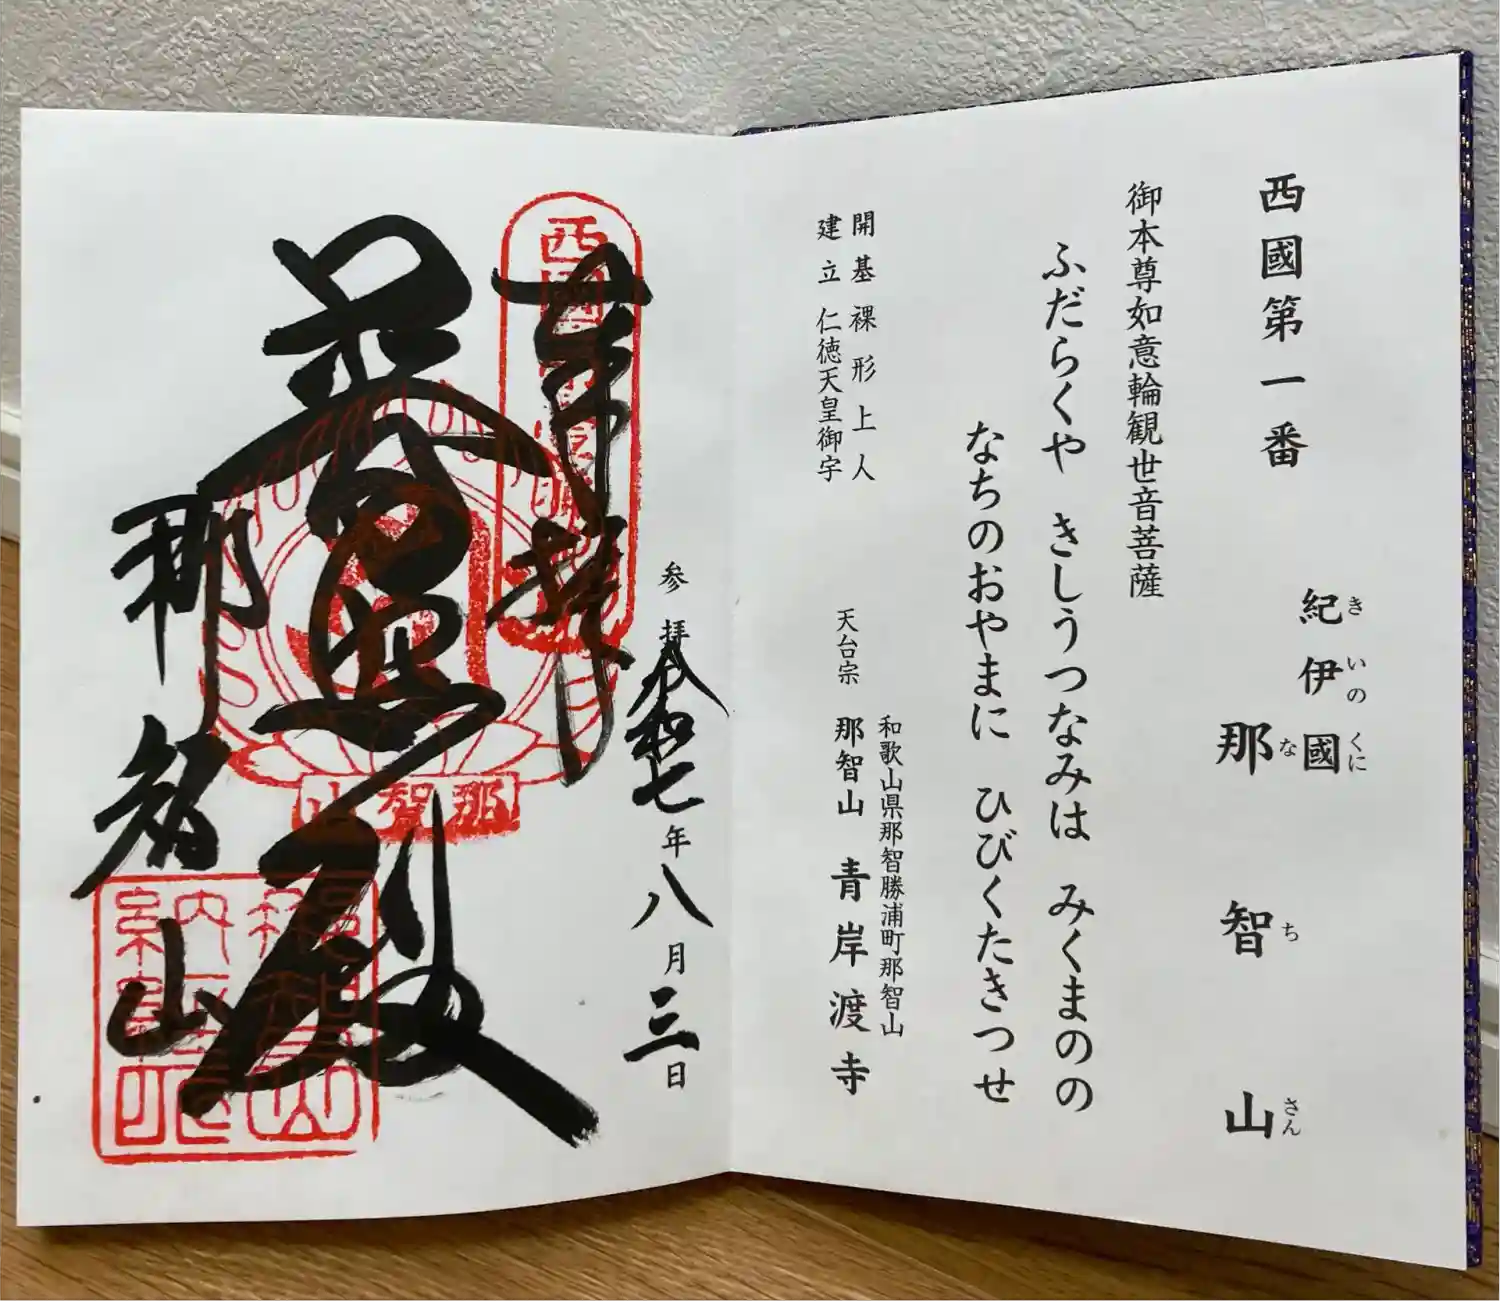 西國第一番
紀伊國
きいのくに
那智山
なちさん
御本尊如意輪観世音菩薩
ふだらくや きしうつなみは みくまのの
なちのおやまに ひびくたきつせ
開基裸形上人
建立仁徳天皇御宇
和歌山県那智勝浦町那智山
天台宗 那智山 青岸渡寺
参拝令和七年八月三日
奉拝
普照殿
那智山
那智山